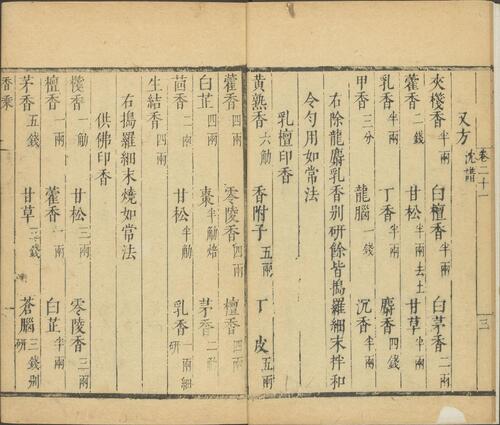 卷二十一
三
又方 沈譜
夾棧香半兩 白檀香半兩 白茅香二兩
藿香二錢 甘松半兩去土 甘草半兩
乳香半兩 丁香半兩 麝香四錢
甲香三分 龍腦一錢 沉香半兩
右除龍麝乳香别研餘皆搗羅細末拌和
令勻用如常法
乳檀印香
黄熟香六觔 香附子五兩 丁皮五兩
藿香四兩 零陵香四兩 檀香四兩
白芷四兩 棗半觔焙 茅香二觔
茴香二兩 甘松半觔 乳香一兩細研
生結香四兩
右搗羅細末燒如常法
供佛印香
棧香一觔 甘松三兩 零陵香三兩
檀香一兩 藿香一兩 白芷半兩
茅香五錢 甘草三錢 蒼腦三錢别研
香乘